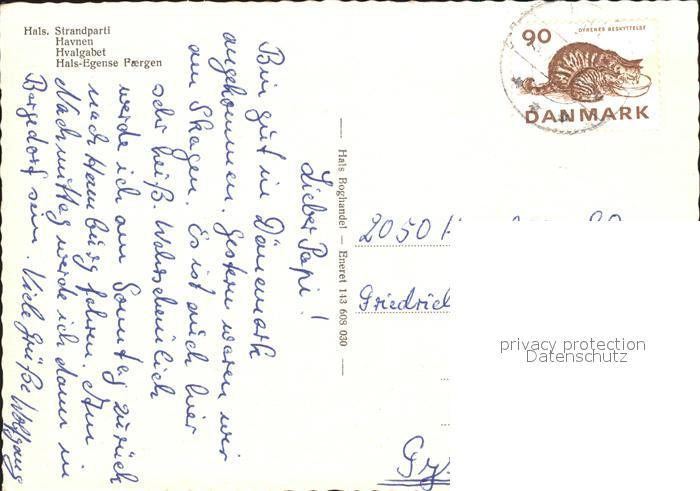 Hals. Strandparti
Havnen
Hvalgabet
Hals-Egense Færgen
90
DYRENES BESKYTTELSE
DANMARK
Lieber Papi!
Bin gut in Dänemark
angekommen. Gestern waren wir
am Skagen. Es ist auch hier
sehr heiß. Wahrscheinlich
werde ich am Sonntag zurück
nach Hamburg fahren. Am
Nachmittag werde ich dann in
Bergedorf sein. Viele Grüße Wolfgang
Hals Boghandel — Eneret 143 608 030
2050
Friedrich
privacy protection
Datenschutz